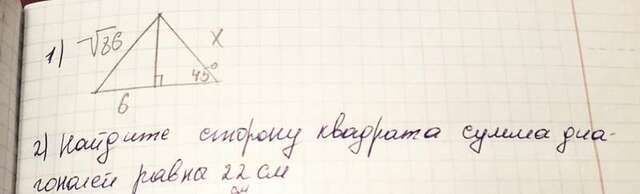 1) √86 x
45°
6
2) Найдите сторону квадрата сумма диа-
гоналей равна 22 см